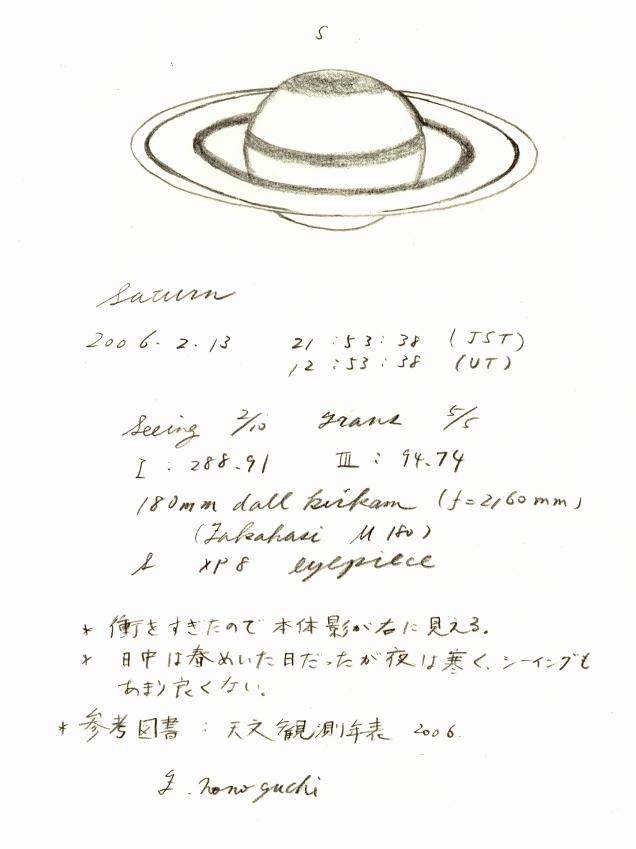 S
Saturn
2006. 2. 13 21:53:38 (JST)
12:53:38 (UT)
Seeing 2/10 Trans 5/5
I : 288.91 III : 94.74
180mm dall kirkam (f=2160mm)
(Takahasi M180)
XP8 eyepiece
* 衝をすぎたので本体影が右に見える。
* 日中は春めいた日だったが夜は寒く、シーイングも
あまり良くない。
* 参考図書 : 天文観測年表 2006.
nonoguchi